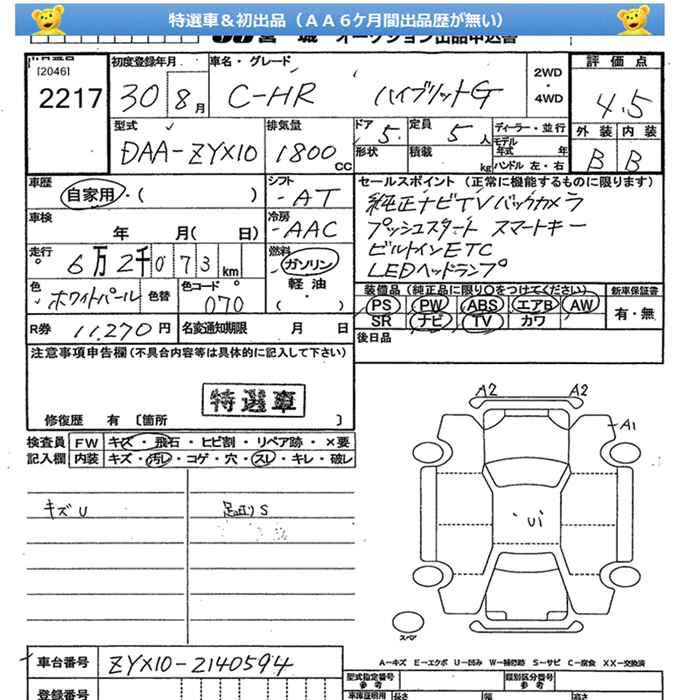 特選車＆初出品（ＡＡ６ケ月間出品歴が無い）
宮城 オークション出品申込書
[2046]
2217
初度登録年月
30 8月
車名・グレード
C-HR ハイブリットG
2WD・4WD
評価点
4.5
外装 内装
B B
型式
DAA-ZYX10
排気量
1800 CC
ドア 5
定員 5人
形状
積載 kg
ディーラー・並行
モデル年式 年
ハンドル 左・右
車歴
自家用・( )
シフト
-AT
車検
年 月( 日)
冷房
-AAC
走行
6万2千073km
燃料
ガソリン
軽油
( ・ )
色
ホワイトパール
色替
色コード
070
R券 11,270円
名変通知期限 月 日
セールスポイント（正常に機能するものに限ります）
純正ナビTVバックカメラ
プッシュスタート スマートキー
ビルトインETC
LEDヘッドランプ
装備品（純正品に限り○をつけてください）
新車保証書
PS PW ABS エアB AW
SR ナビ TV カワ
有・無
後日品
注意事項申告欄（不具合内容等は具体的に記入して下さい）
特選車
修復歴 有〔箇所 〕
検査員記入欄
FW キズ・飛石・ヒビ割・リペア跡・×要
内装 キズ・汚レ・コゲ・穴・スレ・キレ・破レ
キズU
足廻りS
A2 A2
A1
U1
スペア
A－キズ E－エクボ U－凹み W－補修跡 S－サビ C－腐食 XX－交換済
車台番号
ZYX10-2140594
登録番号
型式指定番号 参考
類別区分番号 参考
車庫証明用 長さ 幅 高さ